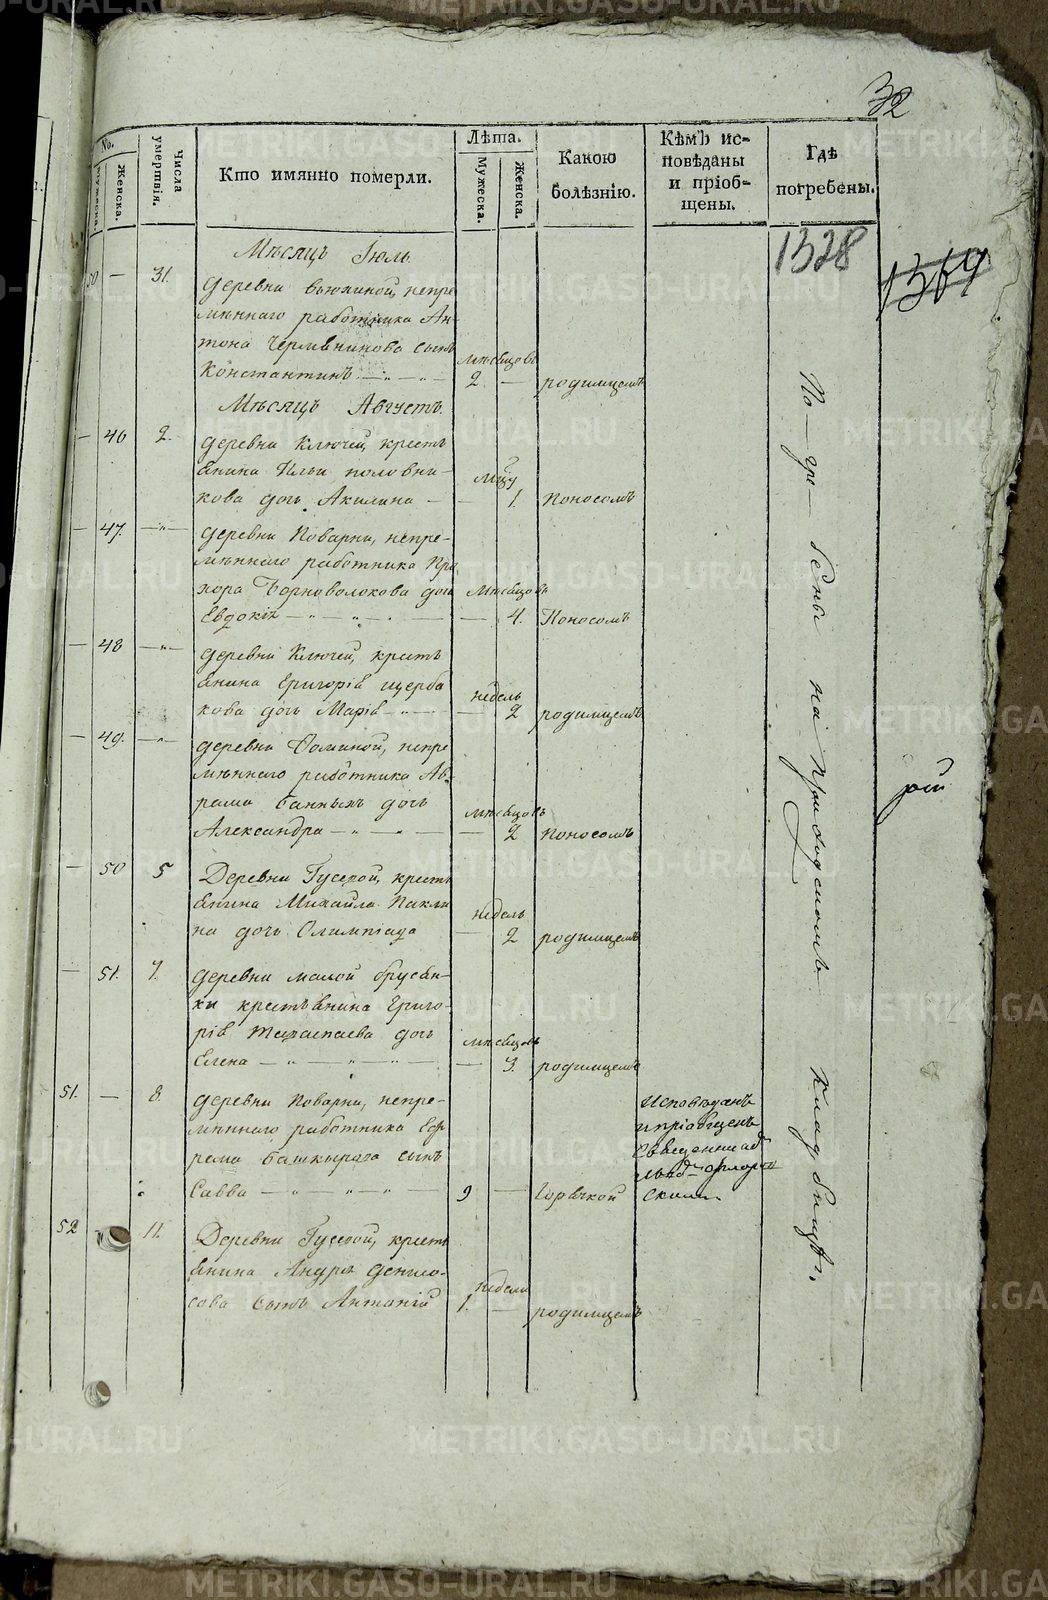 32
No.
Мужеска.
Женска.
Числа умертвія.
Кто имянно померли.
Лѣта.
Мужеска.
Женска.
Какою болѣзнію.
Кѣмъ исповѣданы и пріобщены.
Гдѣ погребены.
1328
1364
Мѣсяцъ Іюль
50 — 31.
деревни Вьюхиной, непре
мѣннаго работника Ан-
тона сынъ
Константинъ
мѣсяцовъ
2 — родимцемъ
Мѣсяцъ Августъ
— 46 2.
деревни Ключей, кресть
янина Ильи половни-
кова дочь Акилина —
мцу
1. Поносомъ
— 47. —"—
деревни Поварни, непре-
мѣннаго работника Про
хора Торноволокова дочь
Евдокія
мѣсяцовъ
— 4. Поносомъ
— 48 —"—
деревни Ключей, кресть
янина Григорія щерба
кова дочь Марія
недель
— 2 родимцемъ
— 49. —"—
деревни Фоминой, непре
мѣннаго работника Ав-
рама банныхъ дочь
Александра
мѣсяцовъ
— 2 поносомъ
— 50 5
Деревни Гусевой, кресть
янина Михайла Пакли
на дочь Олимпіада
недель
— 2 родимцемъ
— 51. 7.
деревни малой брусян-
ки крестьянина Григо-
рія дочь
Елена
мѣсяцовъ
— 3. родимцемъ
51. — 8.
деревни Поварни, непре-
мѣннаго работника Еф
рема башкырова сынъ
Савва
9 — Горячкой
Исповѣданъ
и пріобщенъ
Священни
скимъ
52 11.
Деревни Гусевой, кресть
янина Андрея денисо-
сова сынъ Антоній
недели
1. — родимцемъ
По гре- бены на приходскомъ кладбищѣ.
METRIKI.GASO-URAL.RU